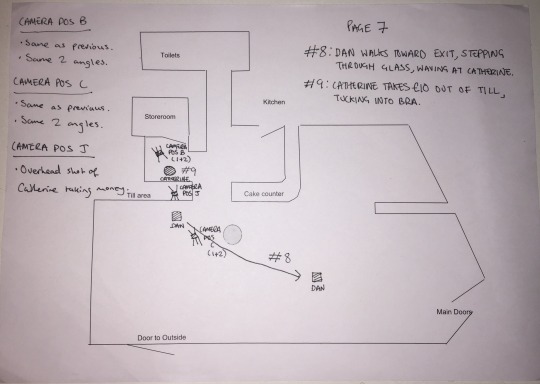 CAMERA POS B
• Same as previous.
• Same 2 angles.
CAMERA POS C
• Same as previous.
• Same 2 angles.
CAMERA POS J
• Overhead shot of
Catherine taking money.
PAGE 7
#8: DAN WALKS TOWARD EXIT, STEPPING
THROUGH GLASS, WAVING AT CATHERINE.
#9: CATHERINE TAKES £10 OUT OF TILL,
TUCKING INTO BRA.
Toilets
Storeroom
Kitchen
CAMERA
POS B
(1+2)
#9
CATHERINE
CAMERA
POS J
Till area
Cake counter
DAN
CAMERA
POS
C
(1+2)
#8
DAN
Main Doors
Door to Outside